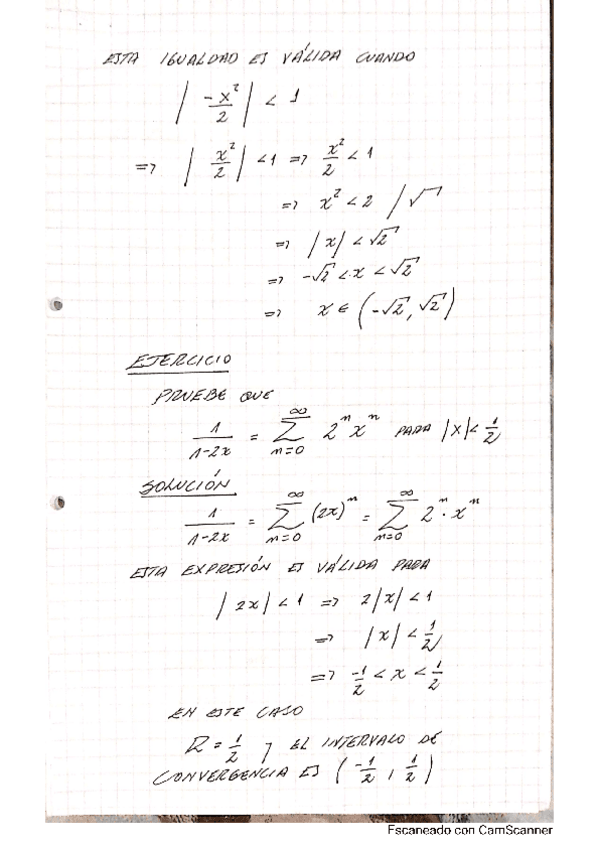 ESTA IGUALDAD ES VÁLIDA CUANDO
| -x²/2 | < 1
=> | x²/2 | < 1 => x²/2 < 1
=> x² < 2 /√
=> |x| < √2
=> -√2 < x < √2
=> x ∈ (-√2, √2)
EJERCICIO
PRUEBE QUE
1/(1-2x) = ∑_{n=0}^{∞} 2ⁿ xⁿ PARA |x| < 1/2
SOLUCIÓN
1/(1-2x) = ∑_{n=0}^{∞} (2x)ⁿ = ∑_{n=0}^{∞} 2ⁿ · xⁿ
ESTA EXPRESIÓN ES VÁLIDA PARA
|2x| < 1 => 2|x| < 1
=> |x| < 1/2
=> -1/2 < x < 1/2
EN ESTE CASO
R = 1/2 y EL INTERVALO DE
CONVERGENCIA ES (-1/2, 1/2)
Escaneado con CamScanner